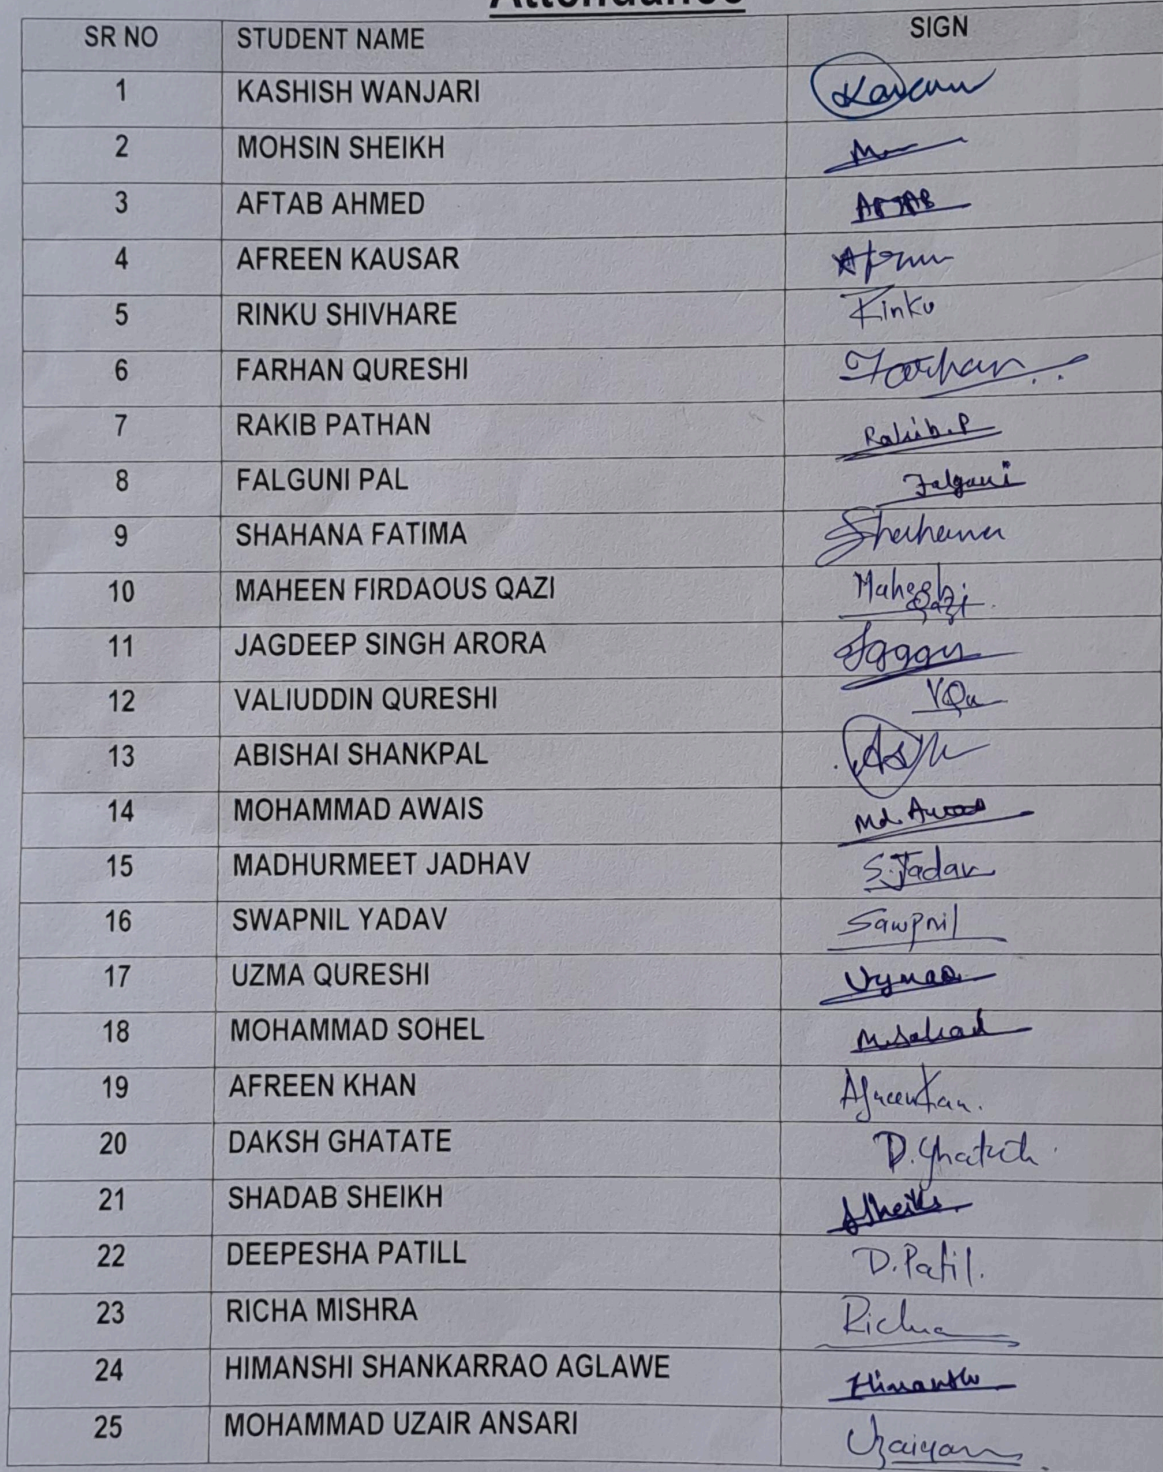 Attendance
SR NO STUDENT NAME SIGN
1 KASHISH WANJARI
2 MOHSIN SHEIKH
3 AFTAB AHMED AFTAB
4 AFREEN KAUSAR
5 RINKU SHIVHARE Rinku
6 FARHAN QURESHI Farhan
7 RAKIB PATHAN Rakib.P
8 FALGUNI PAL Falguni
9 SHAHANA FATIMA Shahana
10 MAHEEN FIRDAOUS QAZI
11 JAGDEEP SINGH ARORA
12 VALIUDDIN QURESHI VQu
13 ABISHAI SHANKPAL
14 MOHAMMAD AWAIS Md. Awais
15 MADHURMEET JADHAV S.Jadav
16 SWAPNIL YADAV Sawpnil
17 UZMA QURESHI
18 MOHAMMAD SOHEL
19 AFREEN KHAN
20 DAKSH GHATATE
21 SHADAB SHEIKH
22 DEEPESHA PATILL D.Patil.
23 RICHA MISHRA Richa
24 HIMANSHI SHANKARRAO AGLAWE
25 MOHAMMAD UZAIR ANSARI